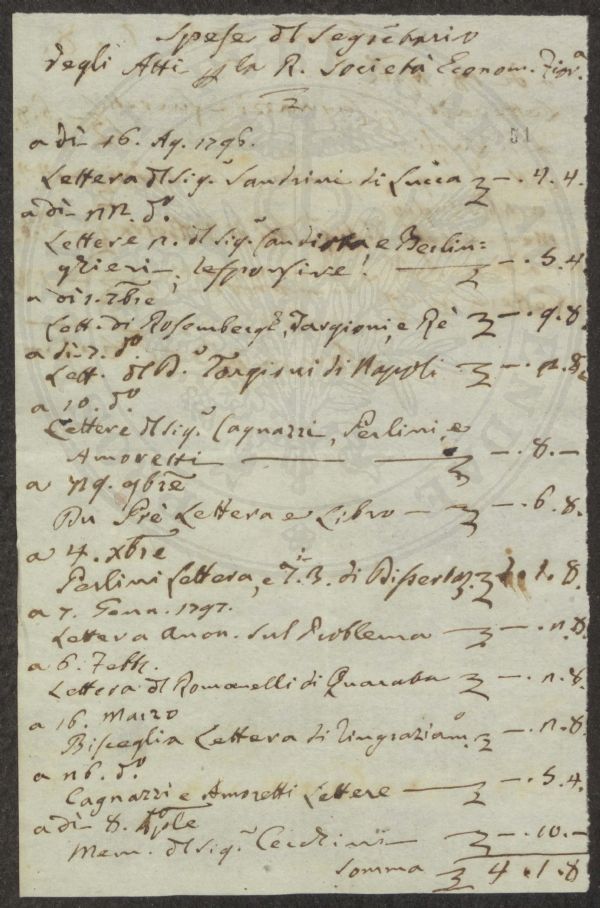 Spese dl Segretario
degli Atti p la R. Società Econom. Fior.a
a dì 16. Ag. 1796.
51
Lettera dl Sig.r Sandrini di Lucca — . 4. 4.
a dì 22. do.
Lettere 2. dl Sig.r e Berlin=
ghieri, responsive! — . 5. 4.
a dì 1. 7bre
Lett. di Rosembergh, Targioni, e Rè — . 9. 8.
a dì 7. do.
Lett. dl D.r Targioni di Napoli — . 2. 8.
a 10. do.
Lettere dl Sig.r Cagnazzi, Perlini, e
Amoretti — . 8. —
a 29. 9bre
Du Prè Lettera e Libro — . 6. 8.
a 4. Xbre
Perlini Lettera, e di 1. 8.
a 7. Genn. 1797.
Lettera anon. sul Problema — . 2. 8.
a 6. Febb.
Lettera dl Romanelli di — . 2. 8.
a 16. Marzo
Bisceglia Lettera di ringraziam.o — . 2. 8.
a 26. do.
Cagnazzi e Amoretti Lettere — . 5. 4.
a dì 8. Aple
Mem. dl Sig.r — . 10. —
Somma 4. 1. 8